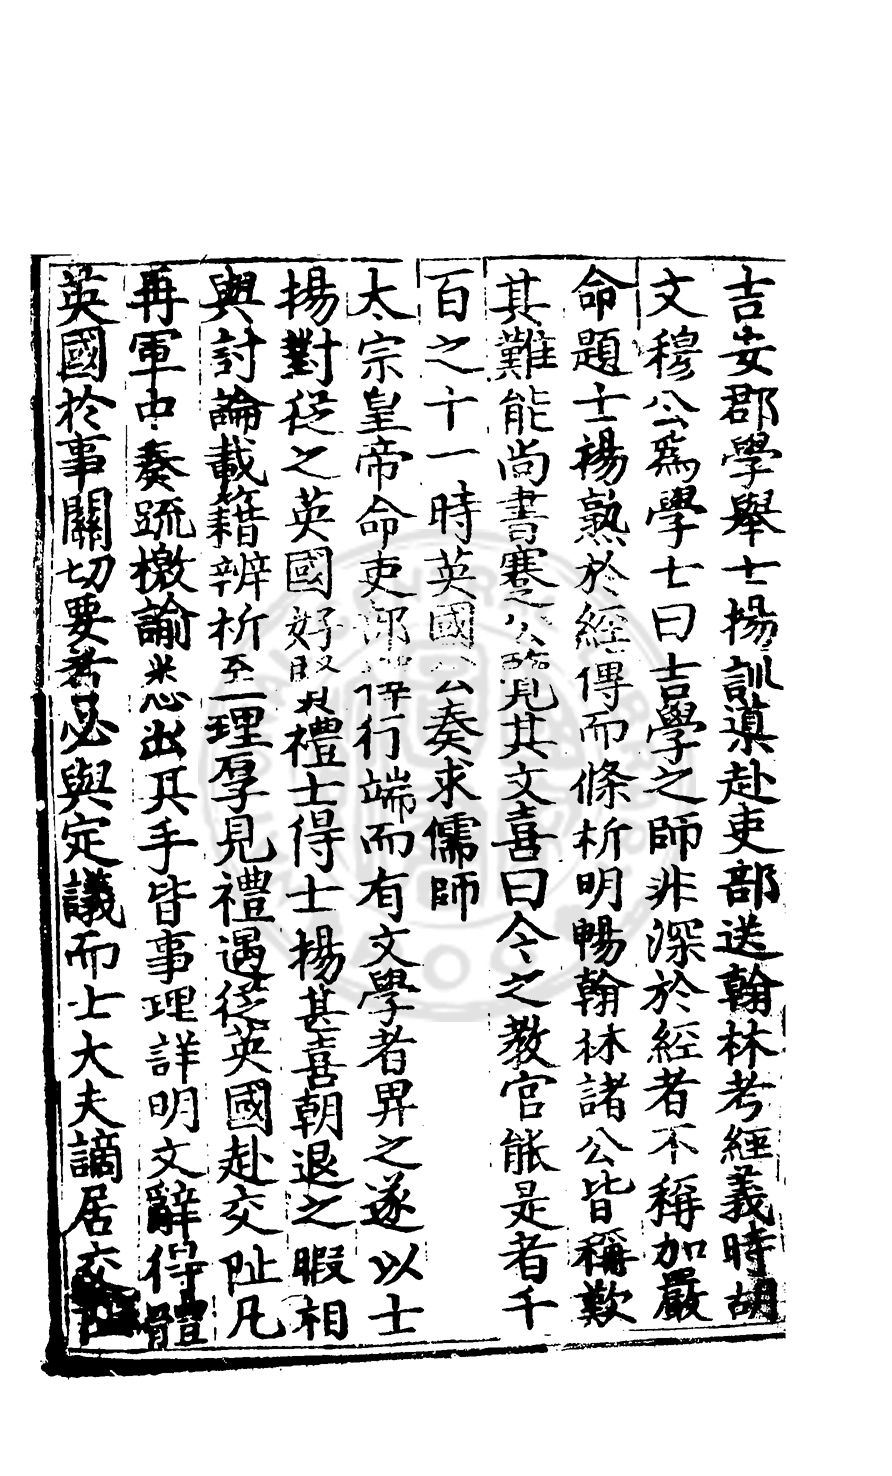 吉安郡學舉士揚訓導赴吏部送翰林考經義時胡
文穆公爲學士曰吉學之師非深於經者不稱加嚴
命題士揚熟於經傳而條析明暢翰林諸公皆稱歎
其難能尚書蹇公覽其文喜曰今之教官能是者千
百之十一時英國公奏求儒師
太宗皇帝命吏部擇行端而有文學者畀之遂以士
揚對從之英國好賢禮士得士揚甚喜朝退之暇相
與討論載籍辨析至理厚見禮遇從英國赴交阯凡
再軍中奏疏檄諭悉出其手皆事理詳明文辭得體
英國於事關切要者必與定議而士大夫謫居交